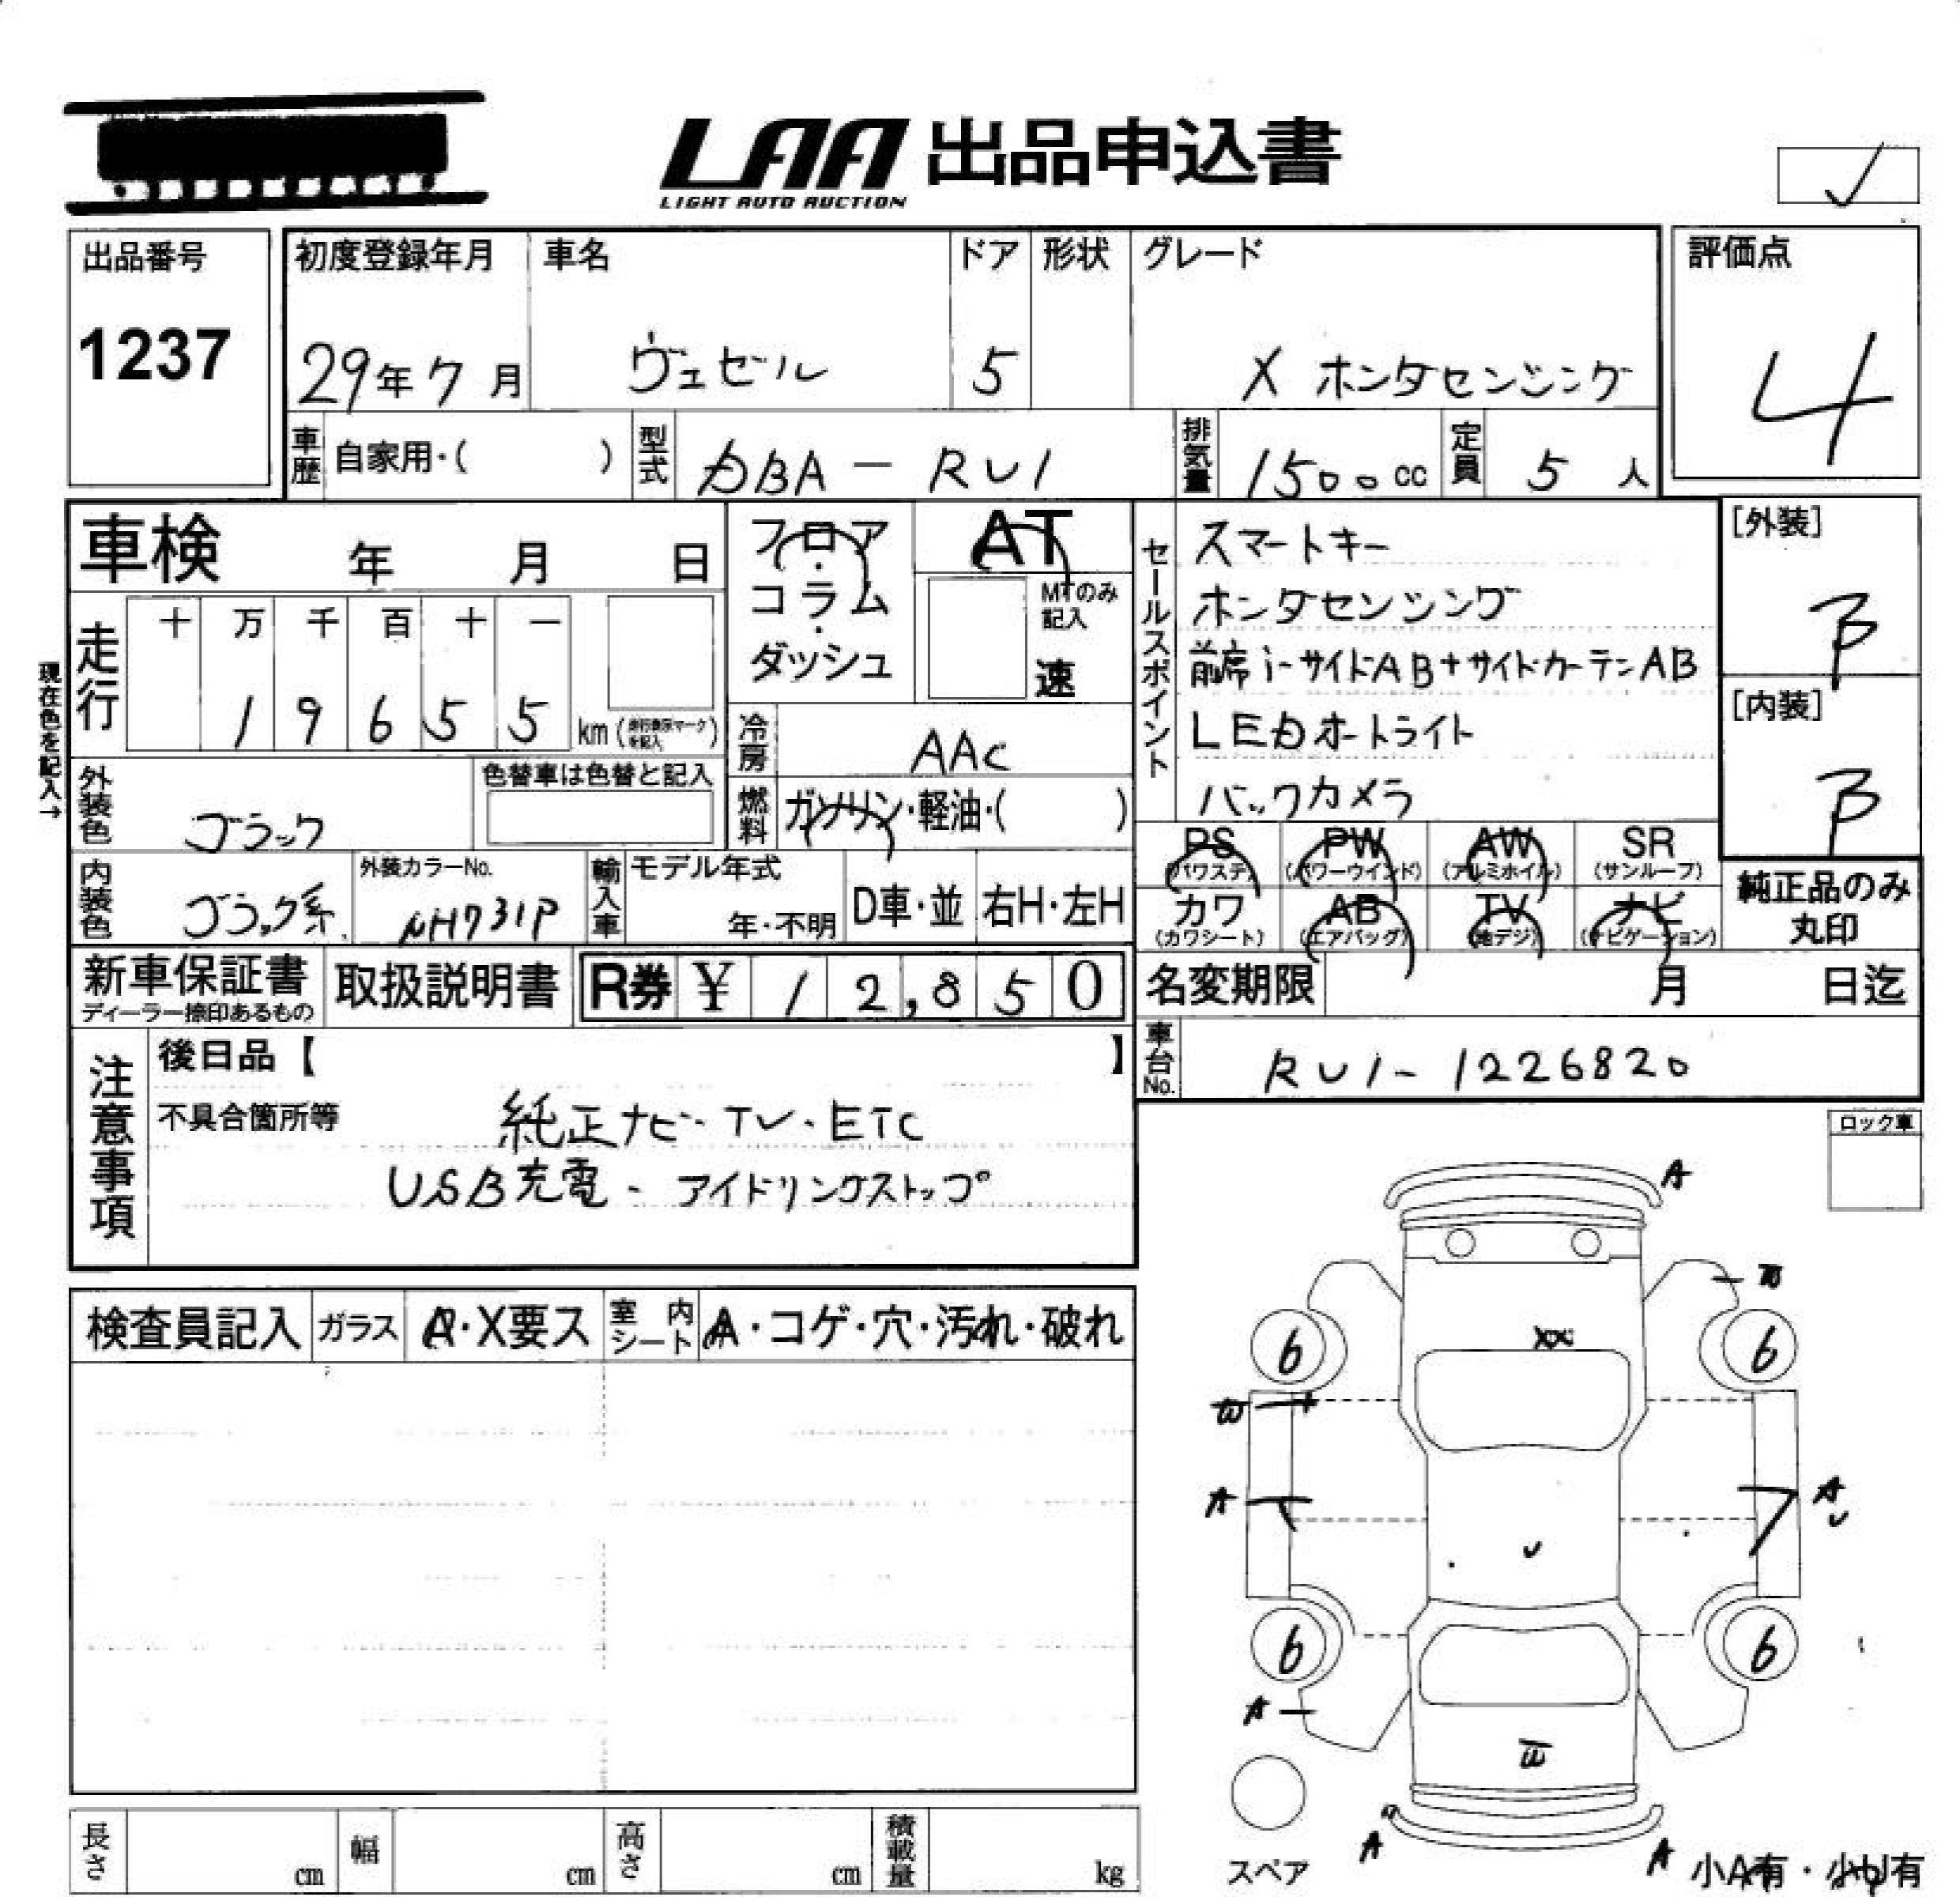 LAA 出品申込書
LIGHT AUTO AUCTION
出品番号
1237
初度登録年月 車名 ドア 形状 グレード
29年 7月 ヴェゼル 5 X ホンダセンシング
評価点
4
車歴 自家用・( ) 型式 DBA-RU1 排気量 1500cc 定員 5人
車検 年 月 日
フロア・コラム・ダッシュ
AT
MTのみ記入
速
セールスポイント
スマートキー
ホンダセンシング
前席i-サイドAB+サイドカーテンAB
LEDオートライト
バックカメラ
[外装]
B
[内装]
B
現在色を記入→
走行 十 万 千 百 十 一
1 9 6 5 5 km(走行表示マークを記入)
冷房 AAC
外装色 ブラック
色替車は色替と記入
燃料 ガソリン・軽油・( )
内装色 ブラック系
外装カラーNo. NH731P
輸入車 モデル年式 年・不明 D車・並 右H・左H
PS(パワステ) PW(パワーウインド) AW(アルミホイル) SR(サンルーフ)
カワ(カワシート) AB(エアバッグ) TV(地デジ) ナビ(ナビゲーション)
純正品のみ丸印
新車保証書
ディーラー捺印あるもの
取扱説明書
R券 ¥12,850
名変期限 月 日迄
車台No. RU1-1226820
注意事項
後日品【 】
不具合箇所等
純正ナビ・TV・ETC
USB充電・アイドリングストップ
ロック車
検査員記入 ガラス A・X要ス 室内シート A・コゲ・穴・汚れ・破れ
A
W
XX
6 6
W
A A
U
U
6 6
A
W
A A
スペア
小A有・小U有
長さ cm 幅 cm 高さ cm 積載量 kg